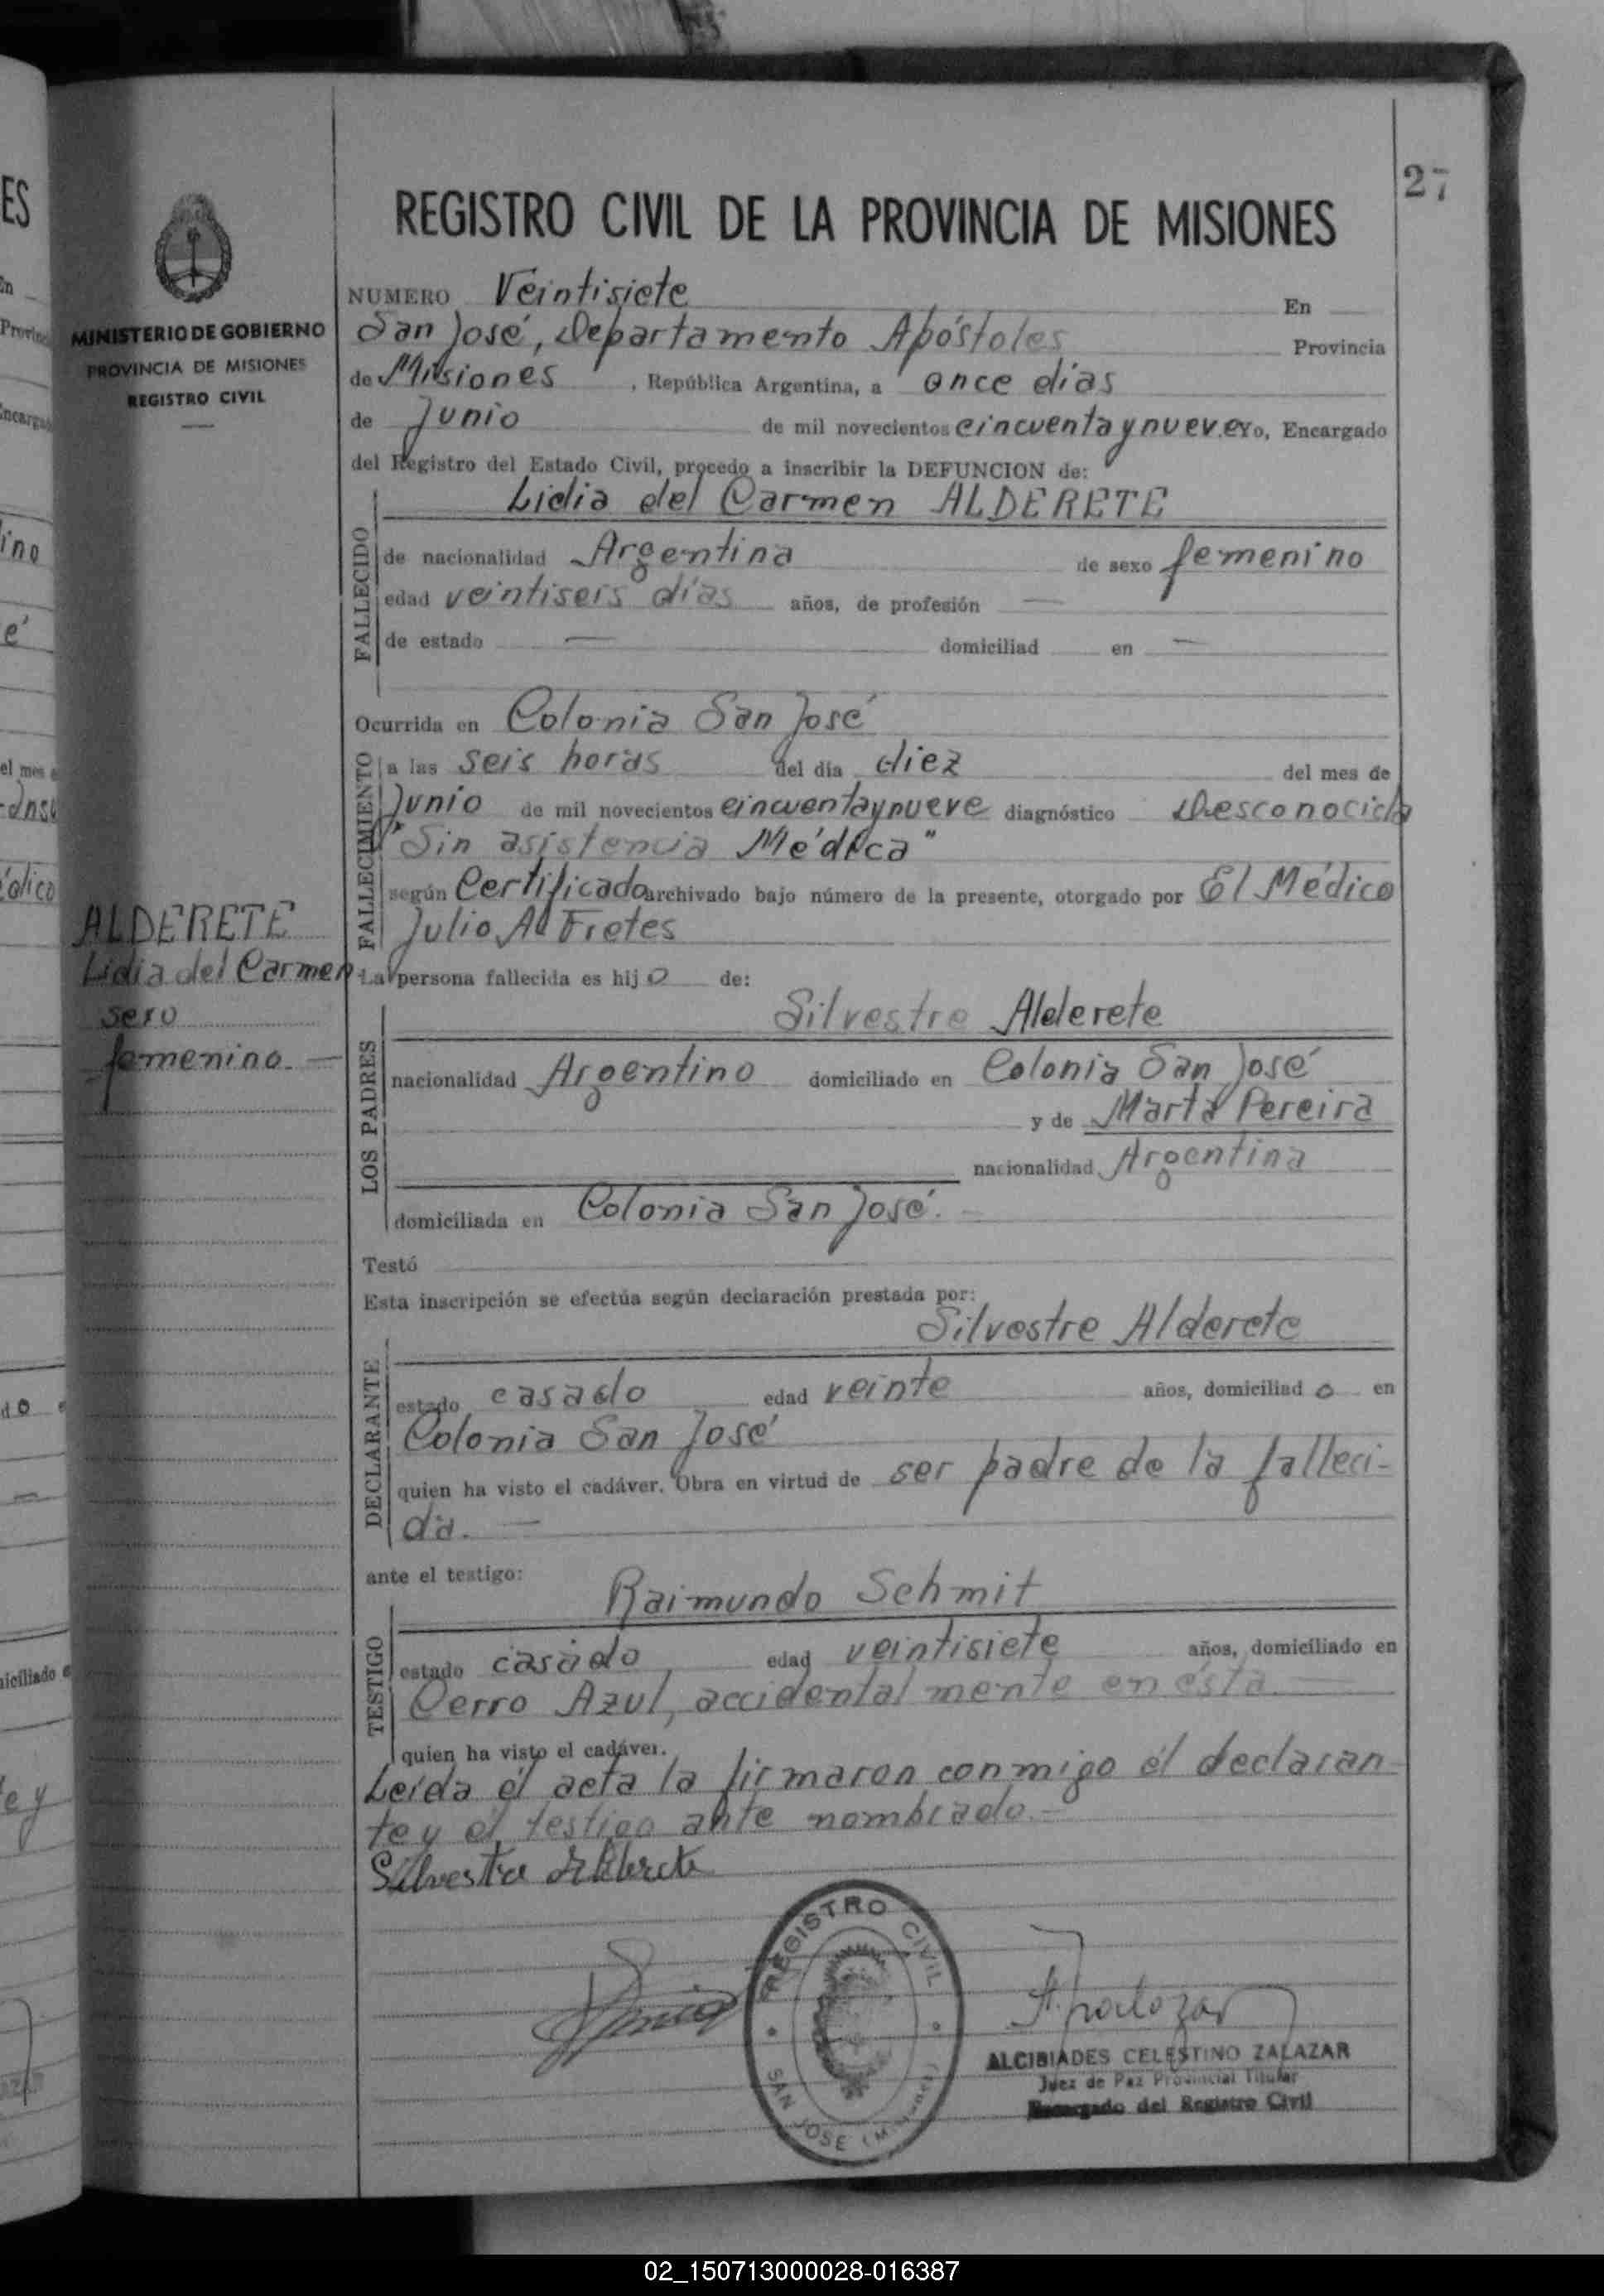 27
REGISTRO CIVIL DE LA PROVINCIA DE MISIONES
MINISTERIO DE GOBIERNO
PROVINCIA DE MISIONES
REGISTRO CIVIL
NUMERO Veintisiete En
San José, Departamento Apóstoles Provincia
de Misiones , República Argentina, a once días
de Junio de mil novecientos cincuenta y nueve Yo, Encargado
del Registro del Estado Civil, procedo a inscribir la DEFUNCION de:
Lidia del Carmen ALDERETE
FALLECIDO
de nacionalidad Argentina de sexo femenino
edad veintiseis días años, de profesión —
de estado — domiciliad en —
Ocurrida en Colonia San José
FALLECIMIENTO
a las seis horas del día diez del mes de
Junio de mil novecientos cincuenta y nueve diagnóstico Desconocida
"Sin asistencia Médica"
según Certificado archivado bajo número de la presente, otorgado por El Médico
Julio A Fretes
ALDERETE
Lidia del Carmen
sexo
femenino. —
La persona fallecida es hijo de:
LOS PADRES
Silvestre Alderete
nacionalidad Argentino domiciliado en Colonia San José
y de Marta Pereira
nacionalidad Argentina
domiciliada en Colonia San José. —
Testó
Esta inscripción se efectúa según declaración prestada por:
Silvestre Alderete
DECLARANTE
estado casado edad veinte años, domiciliad o en
Colonia San José
quien ha visto el cadáver. Obra en virtud de ser padre de la falleci-
da. —
ante el testigo:
Raimundo Schmit
TESTIGO
estado casado edad veintisiete años, domiciliado en
Cerro Azul, accidental mente en ésta. —
quien ha visto el cadáver.
Leída él acta la firmaron conmigo él declaran-
te y él testigo ante nombrado. —
Silvestre Alderete
REGISTRO CIVIL
SAN JOSE (Misiones)
A. Zalazar
ALCIBIADES CELESTINO ZALAZAR
Juez de Paz Provincial Titular
Encargado del Registro Civil
02_150713000028-016387